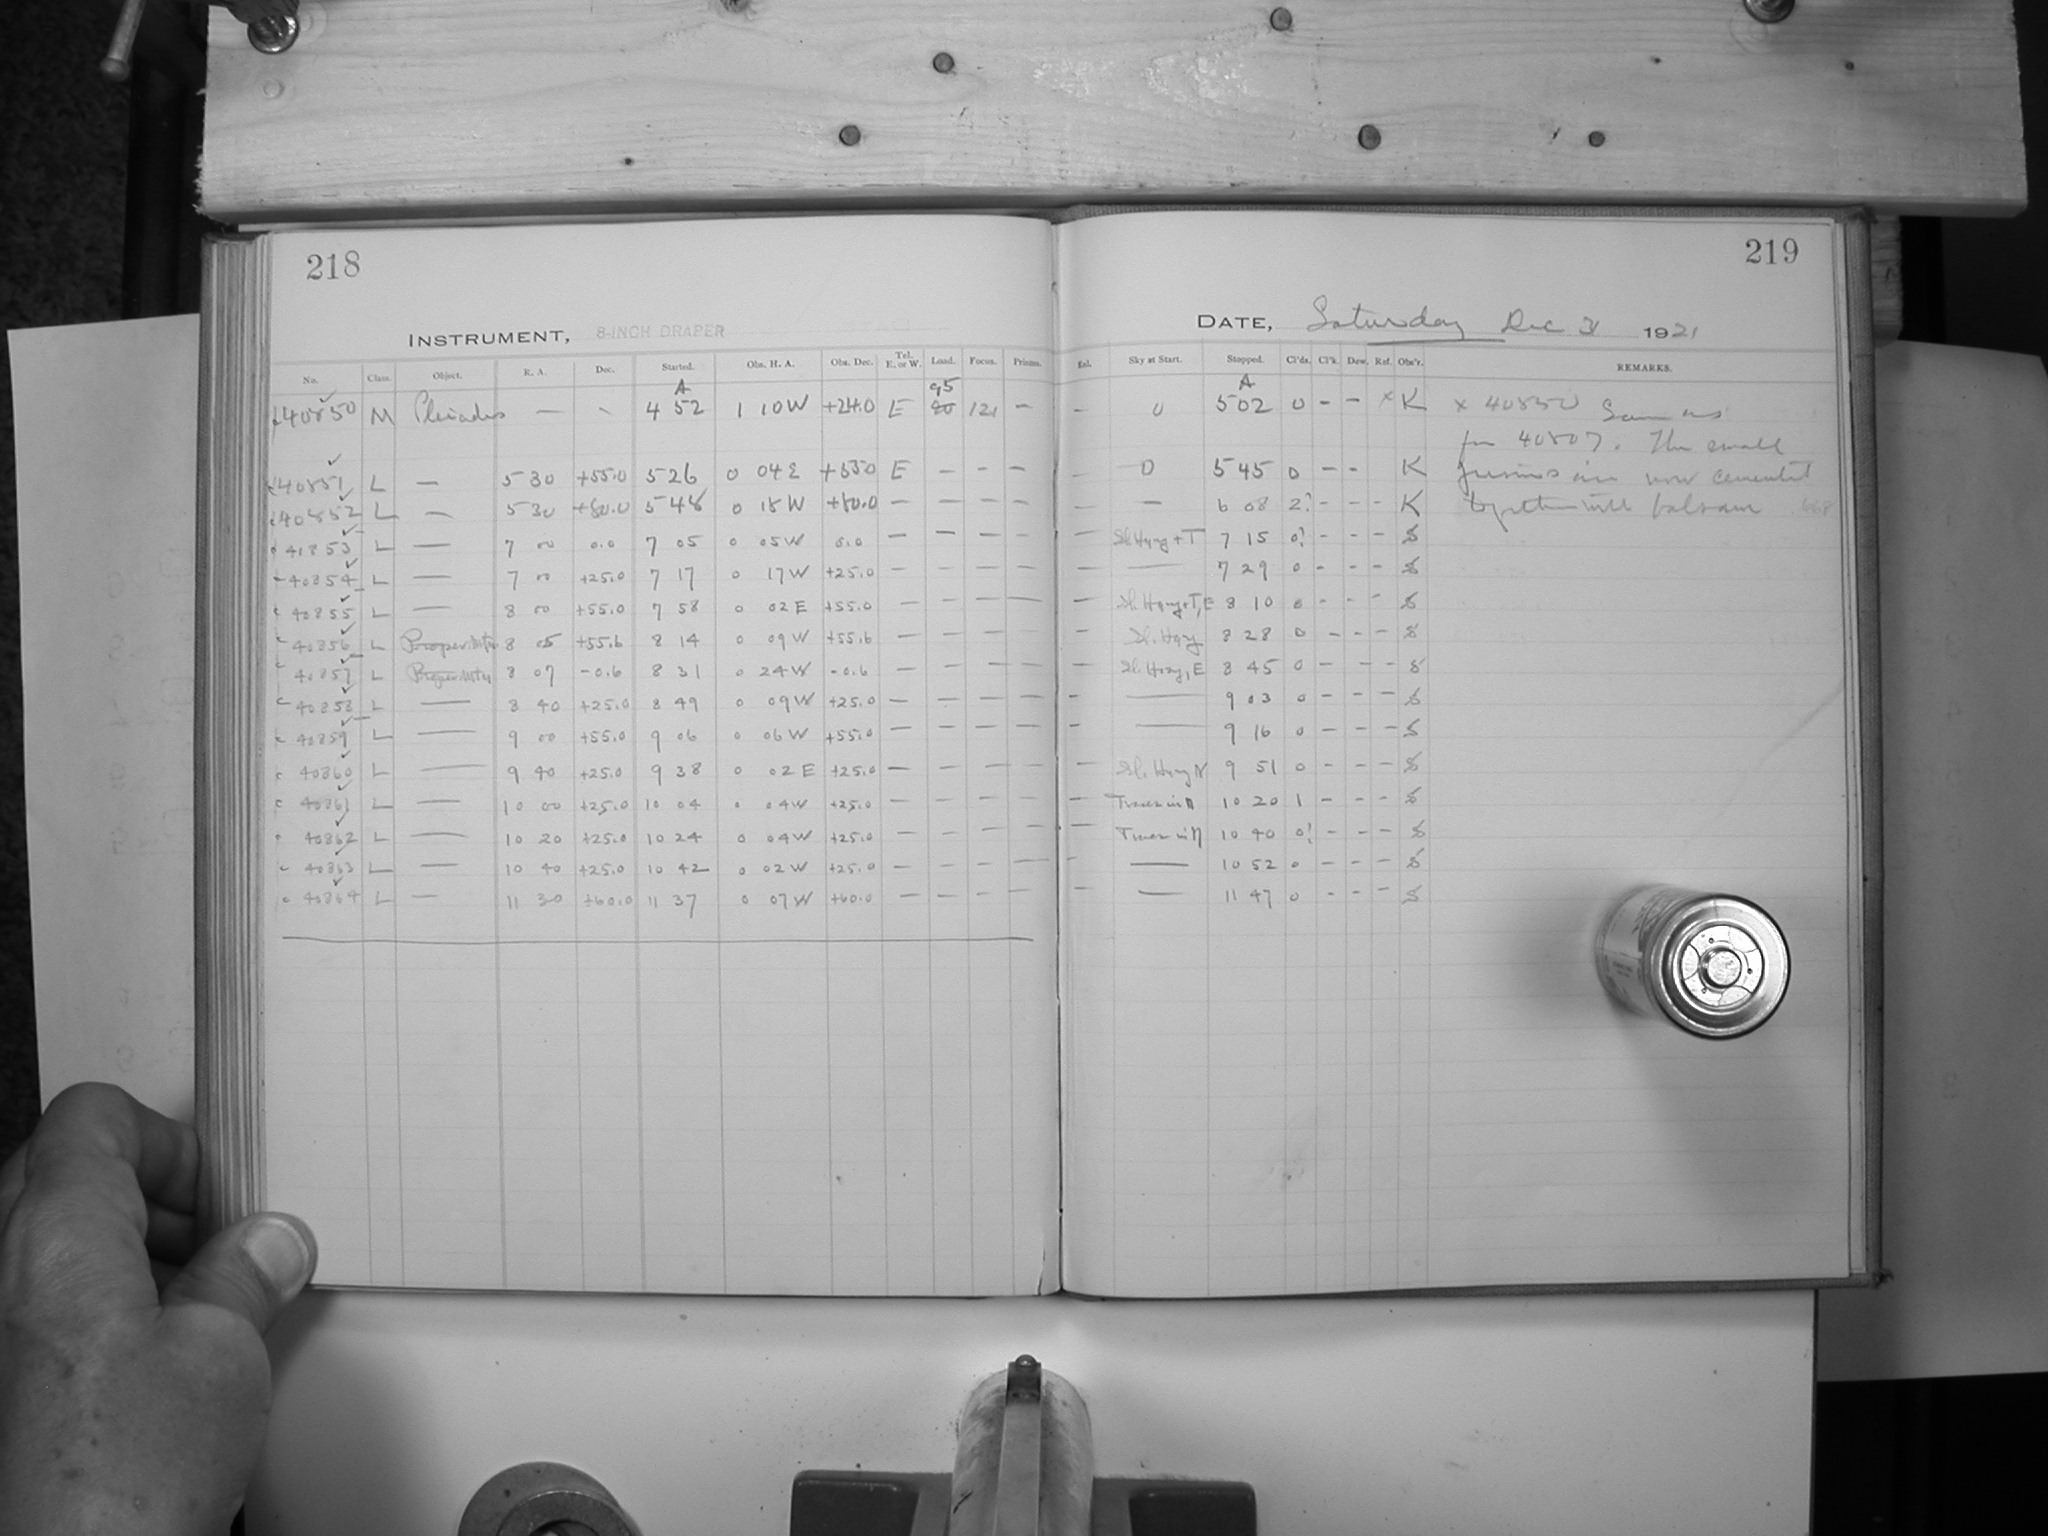 218
219
INSTRUMENT, 8-INCH DRAPER
DATE, Saturday Dec 31 1921
No. Class. Object. R. A. Dec. Started. Obs. H. A. Obs. Dec. Tel. E. or W. Load. Focus. Prisms. Exl. Sky at Start. Stopped. Cl'ds. Cl'k. Dew. Ref. Obs'r. REMARKS.
A 95 A
40850 M Pleiades — - 4 52 1 10W +24.0 E 80 121 - - 0 5 02 0 - - x K x 40850 Same as
for 40807. The small
40851 L — 5 30 +55.0 5 26 0 04E +55.0 E - - - - 0 5 45 0 - - K prisms are now cemented
40852 L — 5 30 +80.0 5 48 0 18W +80.0 - - - - - — 6 08 2? - - K together with balsam
41853 L — 7 00 0.0 7 05 0 05W 0.0 - - - - - Sl. Hazy + T 7 15 0? - - - S
40854 L — 7 00 +25.0 7 17 0 17W +25.0 - - - - - — 7 29 0 - - - S
40855 L — 8 00 +55.0 7 58 0 02E +55.0 - - - - - Sl. Hazy+T, E 8 10 0 - - - S
40856 L Proper Mtn 8 05 +55.6 8 14 0 09W +55.6 - - - - - Sl. Hazy 8 28 0 - - - S
40857 L Proper Mtn 8 07 -0.6 8 31 0 24W -0.6 - - - - - Sl. Hazy, E 8 45 0 - - - S
40858 L — 8 40 +25.0 8 49 0 09W +25.0 - - - - - — 9 03 0 - - - S
40859 L — 9 00 +55.0 9 06 0 06W +55.0 - - - - - — 9 16 0 - - - S
40860 L — 9 40 +25.0 9 38 0 02E +25.0 - - - - - Sl. Hazy N 9 51 0 - - - S
40861 L — 10 00 +25.0 10 04 0 04W +25.0 - - - - - Traces in N 10 20 1 - - - S
40862 L — 10 20 +25.0 10 24 0 04W +25.0 - - - - - Traces in N 10 40 0? - - - S
40863 L — 10 40 +25.0 10 42 0 02W +25.0 - - - - - — 10 52 0 - - - S
40864 L — 11 30 +60.0 11 37 0 07W +60.0 - - - - - — 11 47 0 - - - S